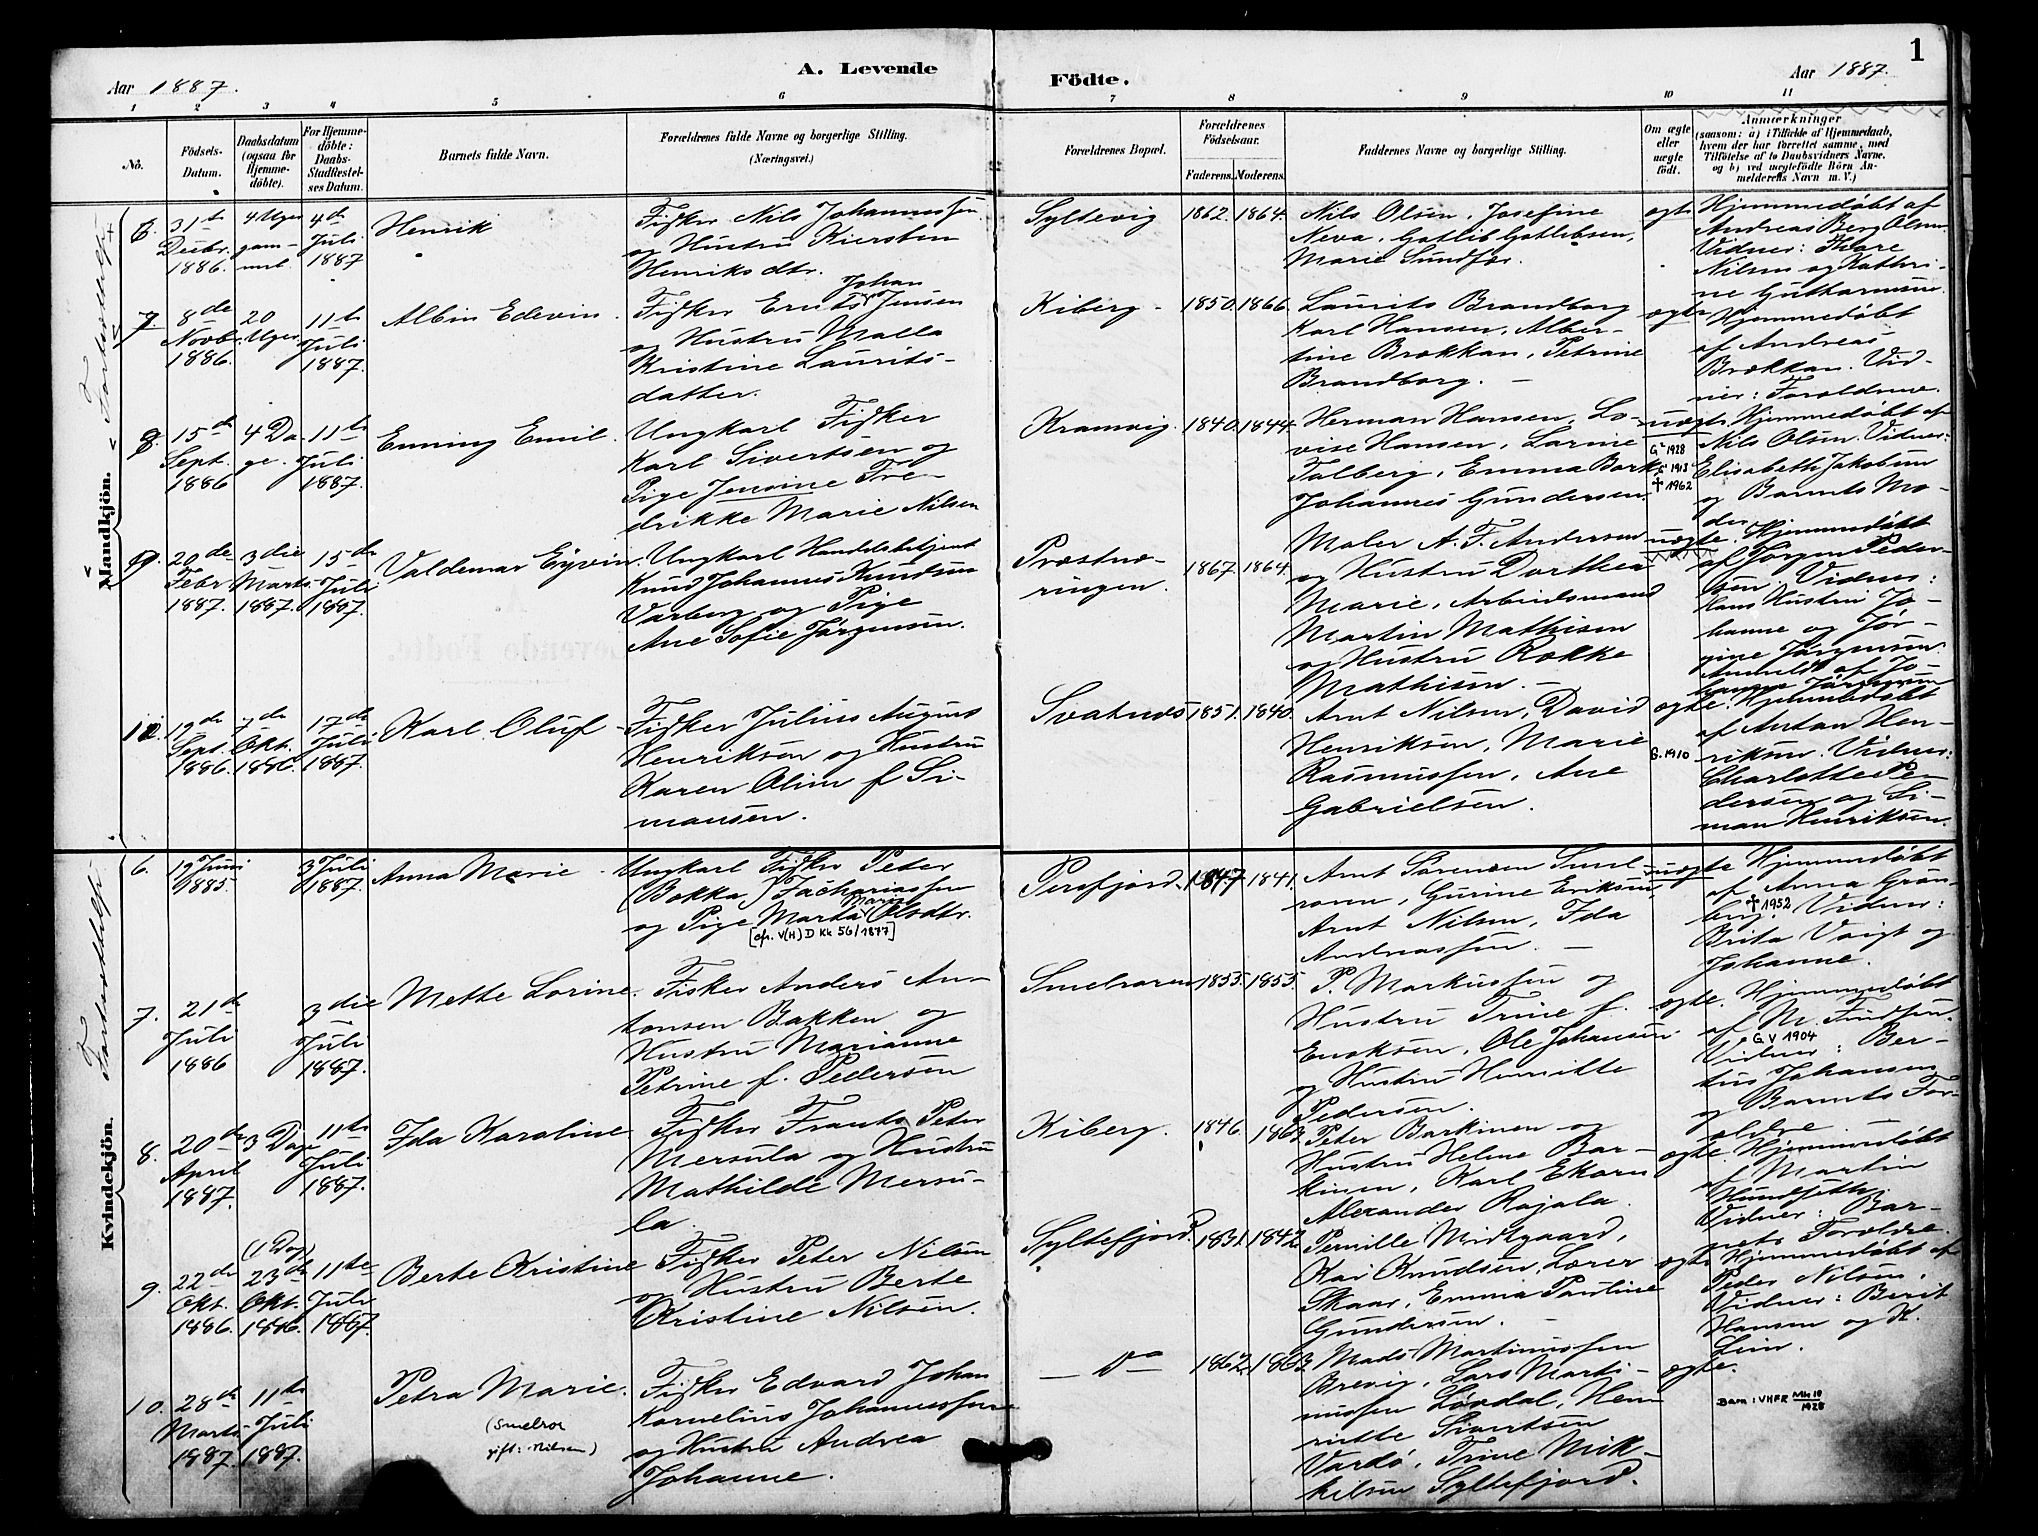 1
A. Levende
Födte.
Aar 1887.
Aar 1887.
1 2 3 4 5 6 7 8 9 10 11
No.
Födsels-Datum.
Daabsdatum (ogsaa for Hjemme-døbte).
For Hjemme-döbte: Daabs-Stadfæstel-ses Datum.
Barnets fulde Navn.
Forældrenes fulde Navne og borgerlige Stilling.
(Næringsvei.)
Forældrenes Bopæl.
Forældrenes Födselsaar.
Faderens. Moderens.
Faddernes Navne og borgerlige Stilling.
Om ægte eller uægte födt.
Anmærkninger
(saasom: a) i Tilfælde af Hjemmedaab,
hvem der har forrettet samme, med
Tilföielse af to Daabsvidners Navne.
og b) ved uægtefödte Börn An-
melderens Navn m. V.)
Mandkjön.
6.
31te
Decbr.
1886.
4 Uger
gam-
mel.
4de
Juli
1887
Henrik
Fisker Nils Johannessen
og Hustru Kiersten
Henriksdtr.
Syltevig
1862. 1864.
Nils Olsen, Josefine
Neva, Gotlib Gotlibsen,
Marie Sundfør.
ægte
Hjemmedøbt af
Andreas Berg Olsen
Vidner: Kaare
Nilsen og Kathri-
ne Guttormsen.
7
8de
Novbr.
1886.
20
Uger
11te
Juli
1887.
Albin Edevin.
Johan
Fisker Ernts Jensen
og Hustru Malla
Kristine Laurits-
datter.
Kiberg
1850. 1866.
Laurits Brandborg
Karl Hansen, Alber-
tine Brækkan, Petrine
Brandborg.
ægte
Hjemmedøbt
af Andreas
Brækkan. Vid-
ner: Forældrene.
8.
15de
Sept.
1886
4 Da-
ge.
11te
Juli
1887.
Enning Emil.
Ungkarl Fisker
Karl Sivertsen og
Pige Jensine Fre-
drikke Marie Nilsen
Kramvig.
1840. 1844.
Herman Hansen, Lo-
vise Hansen, Larine
Talberg, Emma Bork
Johannes Gundersen.
uægte
G 1928
1913
† 1962
Hjemmedøbt af
Nils Olsen. Vidner:
Elisabeth Jakobsen
og Barnets Mo-
der.
9.
20de
Febr
1887.
3die
Marts
1887.
15de
Juli
1887.
Valdemar Eyvin.
Ungkarl Handelsbetjent
Knud Johannes Knudsen
Varberg og Pige
Ane Sofie Jørgensen.
Præstnæ-
ringen.
1867. 1864.
Maler A. F. Andersen
og Hustru Dorthea
Marie, Arbeidsmand
Martin Mathisen
og Hustru Rokke
Mathisen.
uægte.
Hjemmedøbt
af Jørgen Peder-
sen. Vidner:
Hans Hustru Jo-
hanne og Jør-
gine Jørgensen.
Anmeldt af Jo-
hanne Jørgensen
19de
Sept.
1886.
7de
Okt.
1886.
17de
Juli
1887.
Karl Oluf
Fisker Julius August
Henriksen og Hustru
Karen Oline f. Si-
monsen.
Svatnæs
1851. 1840.
Arnt Nilsen, David
Henriksen, Marie
Rasmussen, Ane
Gabrielsen.
ægte.
G. 1910
Hjemmedøbt
af Antan Hen-
riksen. Vidner:
Charlotte Pe-
dersen og Si-
man Henriksen.
Kvindekjön.
6.
19 Juni
1885.
3 Juli
1887.
Anna Marie
Ungkarl Fisker Peter
(Bokka) Zachariassen
Marie
og Pige Marta Olsdtr.
[cfr. V(H) D Kk 56/1877]
Persfjord.
1847 1841.
Arnt Sørensen Smel-
roren, Gurine Eriksen,
Arnt Nilsen, Ida
Andreassen.
uægte
Hjemmedøbt
af Anna Grøn-
† 1952
berg. Vidner:
Brita Voigt og
Johanne.
7.
21de
Juli
1886
3die
Juli
1887.
Mette Lorine.
Fisker Anders An-
tonsen Bakken og
Hustru Marianne
Petrine f. Pedersen
Smelroren
1855. 1855.
P. Markussen og
Hustru Trine f.
Enoksen, Ole Johansen
og Hustru Henritte
Pedersen.
ægte.
Hjemmedøbt
af M. Findsen.
G V 1904
Vidner: Ber-
tus Johansen
og Barnets For-
ældre
8.
20de
April
1887.
3 Dage
11te
Juli
1887.
Ida Karoline
Fisker Frants Peter
Mersula og Hustru
Mathilde Mersu-
la.
Kiberg.
1846. 1863
Peter Barkinen og
Hustru Helene Bar-
kinen, Karl Ekorn
Alexander Rajala.
ægte.
Hjemmedøbt
af Martin
Hundseth.
Vidner: Bar-
nets Forældre.
9.
22de
Okt.
1886.
(1 Dag)
23de
Okt.
1886.
11te
Juli
1887.
Berte Kristine
Fisker Peter Nilsen
og Hustru Berte
Kristine Nilsen.
Syltefjord.
1831. 1842
Pernille Midtgaard,
Kai Knudsen, Lærer
Skaar, Emma Pauline
Gundersen.
ægte
Hjemmedøbt af
Peder Nilsen.
Vidner: Berit
Hansen og K.
Lein.
10.
28de
Marts
1887.
11te
Juli
1887.
Petra Marie.
(Smelror
gift: Nilsen)
Fisker Edvard Johan
Kornelius Johannessen
og Hustru Andrea
Johanne.
Do
1862. 1863
Mads Martinussen
Brevig, Lars Marti-
nussen Løvdal, Hen-
ritte Sivertsen
Vardø, Trine Mik-
kelsen Syltefjord.
ægte.
Barn: VHFR Mk 10/1928